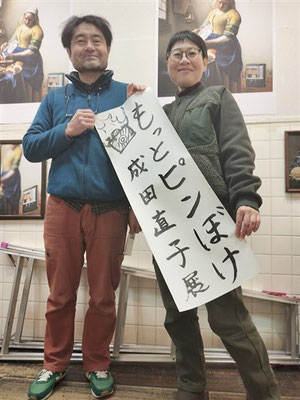 もっとピンぼけ
成田直子展